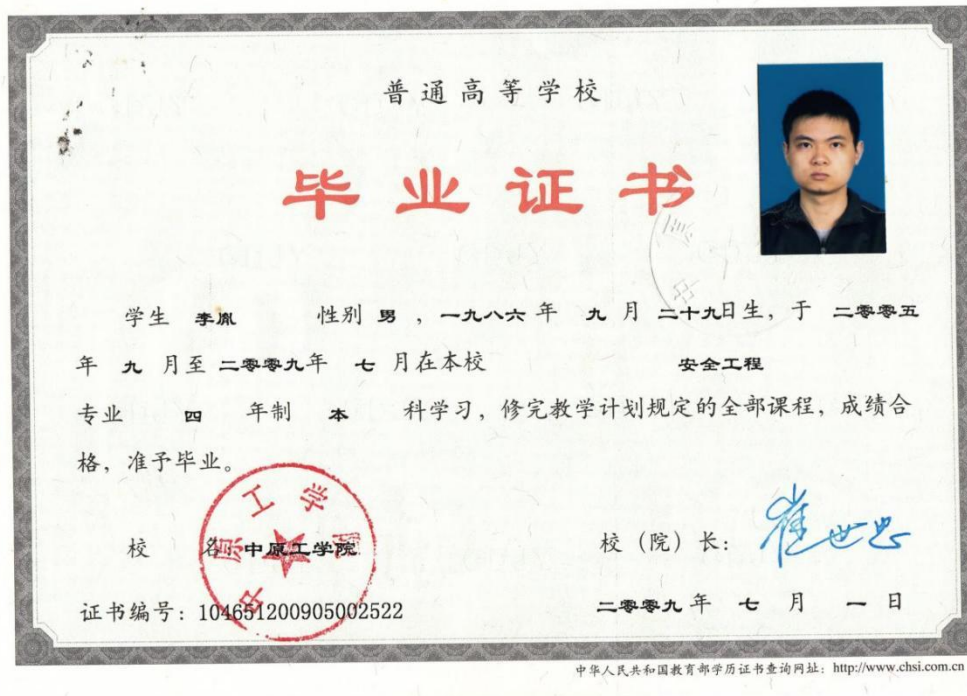 普通高等学校
毕业证书
学生 李胤 性别 男 ，一九八六 年 九 月 二十九日生，于 二零零五
年 九 月至 二零零九年 七 月在本校 安全工程
专业 四 年制 本 科学习，修完教学计划规定的全部课程，成绩合
格，准予毕业。
校 名 中原工学院
中原工学院
校（院）长：崔世忠
证书编号：104651200905002522
二零零九 年 七 月 一 日
中华人民共和国教育部学历证书查询网址：http://www.chsi.com.cn